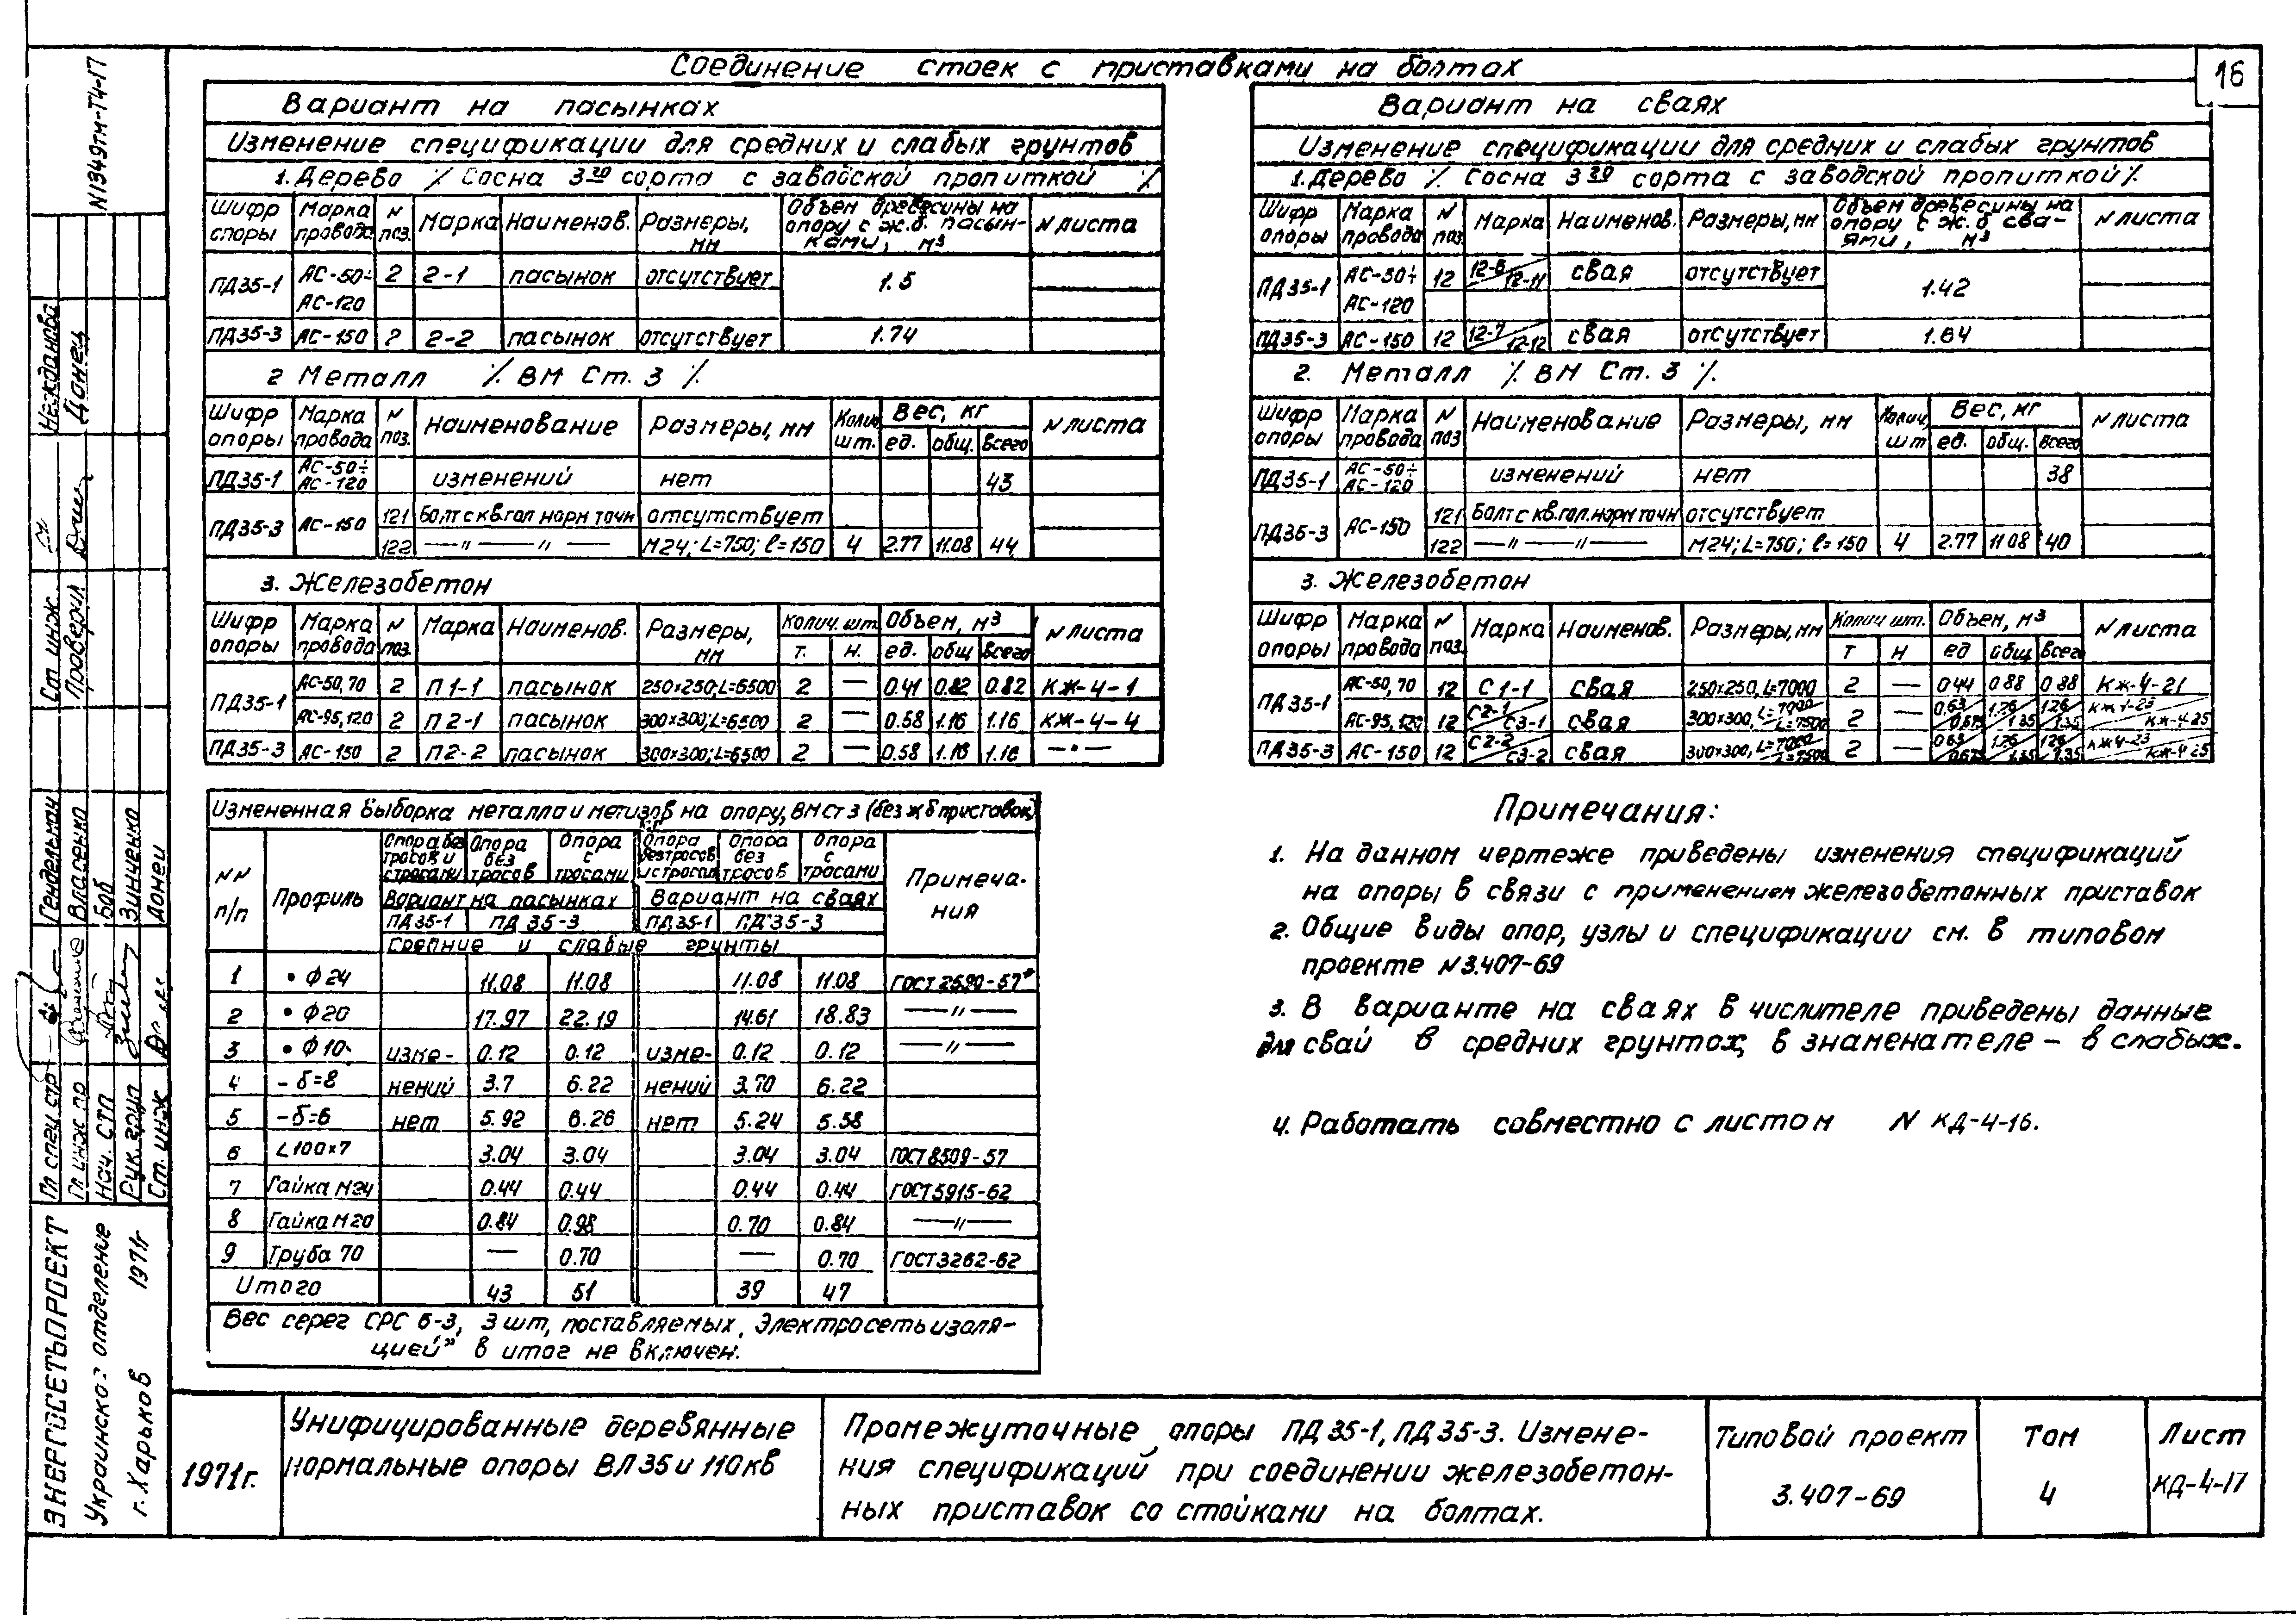 Соединение стоек с приставками на болтах
16
Вариант на пасынках
Изменение спецификации для средних и слабых грунтов
1. Дерево % Сосна 3го сорта с заводской пропиткой %
Шифр опоры Марка провода N поз. Марка Наименов. Размеры, мм Объем древесины на опору с ж.б. пасынками, м³ N листа
ПД35-1 АС-50÷ АС-120 2 2-1 пасынок отсутствует 1.5
ПД35-3 АС-150 2 2-2 пасынок отсутствует 1.74
2 Металл % ВМ Ст. 3 %
Шифр опоры Марка провода N поз. Наименование Размеры, мм Колич. шт. Вес, кг ед. общ. всего N листа
ПД35-1 АС-50÷ АС-120 изменений нет 43
ПД35-3 АС-150 121 Болт с кв.гол норм точн отсутствует
122 —〃—〃— М24; L=750; ℓ=150 4 2.77 11.08 44
3. Железобетон
Шифр опоры Марка провода N поз. Марка Наименов. Размеры, мм Колич. шт. т. н. Объем, м³ ед. общ всего N листа
ПД35-1 АС-50,70 2 П1-1 пасынок 250×250; L=6500 2 — 0.41 0.82 0.82 КЖ-4-1
АС-95,120 2 П2-1 пасынок 300×300; L=6500 2 — 0.58 1.16 1.16 КЖ-4-4
ПД35-3 АС-150 2 П2-2 пасынок 300×300; L=6500 2 — 0.58 1.16 1.16 —〃—
Вариант на сваях
Изменение спецификации для средних и слабых грунтов
1. Дерево % Сосна 3го сорта с заводской пропиткой %
Шифр опоры Марка провода N поз Марка Наименов. Размеры, мм Объем древесины на опору с ж.б. сваями, м³ N листа
ПД35-1 АС-50÷ АС-120 12 12-6/12-11 свая отсутствует 1.42
ПД35-3 АС-150 12 12-7/12-12 свая отсутствует 1.64
2. Металл % ВМ Ст. 3 %
Шифр опоры Марка провода N поз Наименование Размеры, мм Колич, шт Вес, кг ед. общ. всего N листа
ПД35-1 АС-50÷ АС-120 изменений нет 38
ПД35-3 АС-150 121 Болт с кв.гол.норм точн отсутствует
122 —〃—〃— М24; L=750; ℓ=150 4 2.77 11 08 40
3. Железобетон
Шифр опоры Марка провода N поз. Марка Наименов. Размеры, мм Колич шт. т н Объем, м³ ед общ всего N листа
ПД35-1 АС-50,70 12 С1-1 свая 250×250, L=7000 2 — 0 44 0 88 0 88 КЖ-4-21
АС-95,120 12 С2-1/С3-1 свая 300×300, L=7000/L=7500 2 — 0.63/0.675 1.26/1.35 1.26/1.35 КЖ4-23/КЖ-4-25
ПД35-3 АС-150 12 С2-2/С3-2 свая 300×300, L=7000/L=7500 2 — 0 63/0.675 1.26/1.35 1.26/1.35 КЖ4-23/КЖ-4 25
Измененная выборка металла и метизов на опору, ВМ Ст 3 (без ж б приставок)
NN п/п Профиль Опора без тросов и с тросами Опора без тросов Опора с тросами Опора без тросов и с тросами Опора без тросов Опора с тросами Примечания
Вариант на пасынках Вариант на сваях
ПД35-1 ПД 35-3 ПД35-1 ПД35-3
Средние и слабые грунты
1 • ф24 11.08 11.08 11.08 11.08 ГОСТ 2590-57*
2 • ф20 17.97 22.19 14.61 18.83 —〃—
3 • ф10 изме- 0.12 0.12 изме- 0.12 0.12 —〃—
4 - δ=8 нений 3.7 6.22 нений 3.70 6.22
5 - δ=6 нет 5.92 6.26 нет 5.24 5.58
6 ∠100×7 3.04 3.04 3.04 3.04 ГОСТ 8509-57
7 Гайка М24 0.44 0.44 0.44 0.44 ГОСТ 5915-62
8 Гайка М20 0.84 0.98 0.70 0.84 —〃—
9 Труба 70 — 0.70 — 0.70 ГОСТ 3262-62
Итого 43 51 39 47
Вес серег СРС 6-3, 3 шт, поставляемых „Электросетьизоля-
цией" в итог не включен.
Примечания:
1. На данном чертеже приведены изменения спецификаций
на опоры в связи с применением железобетонных приставок
2. Общие виды опор, узлы и спецификации см. в типовом
проекте N 3.407-69
3. В варианте на сваях в числителе приведены данные
для свай в средних грунтах, в знаменателе - в слабых.
4. Работать совместно с листом N КД-4-16.
1971г.
Унифицированные деревянные
нормальные опоры ВЛ 35 и 110 кв
Промежуточные опоры ПД 35-1, ПД 35-3. Измене-
ния спецификаций при соединении железобетон-
ных приставок со стойками на болтах.
Типовой проект
3.407-69
Том
4
Лист
КД-4-17
N1349тм-Т4-17
Ст. инж. Нежданова
Проверил Донец
Гл спец стр Гендельман
Гл. инж. пр Власенко
Нач. СТП Боб
Рук. груп Зинченко
Ст. инж Донец
ЭНЕРГОСЕТЬПРОЕКТ
Украинское отделение
г. Харьков 1971г